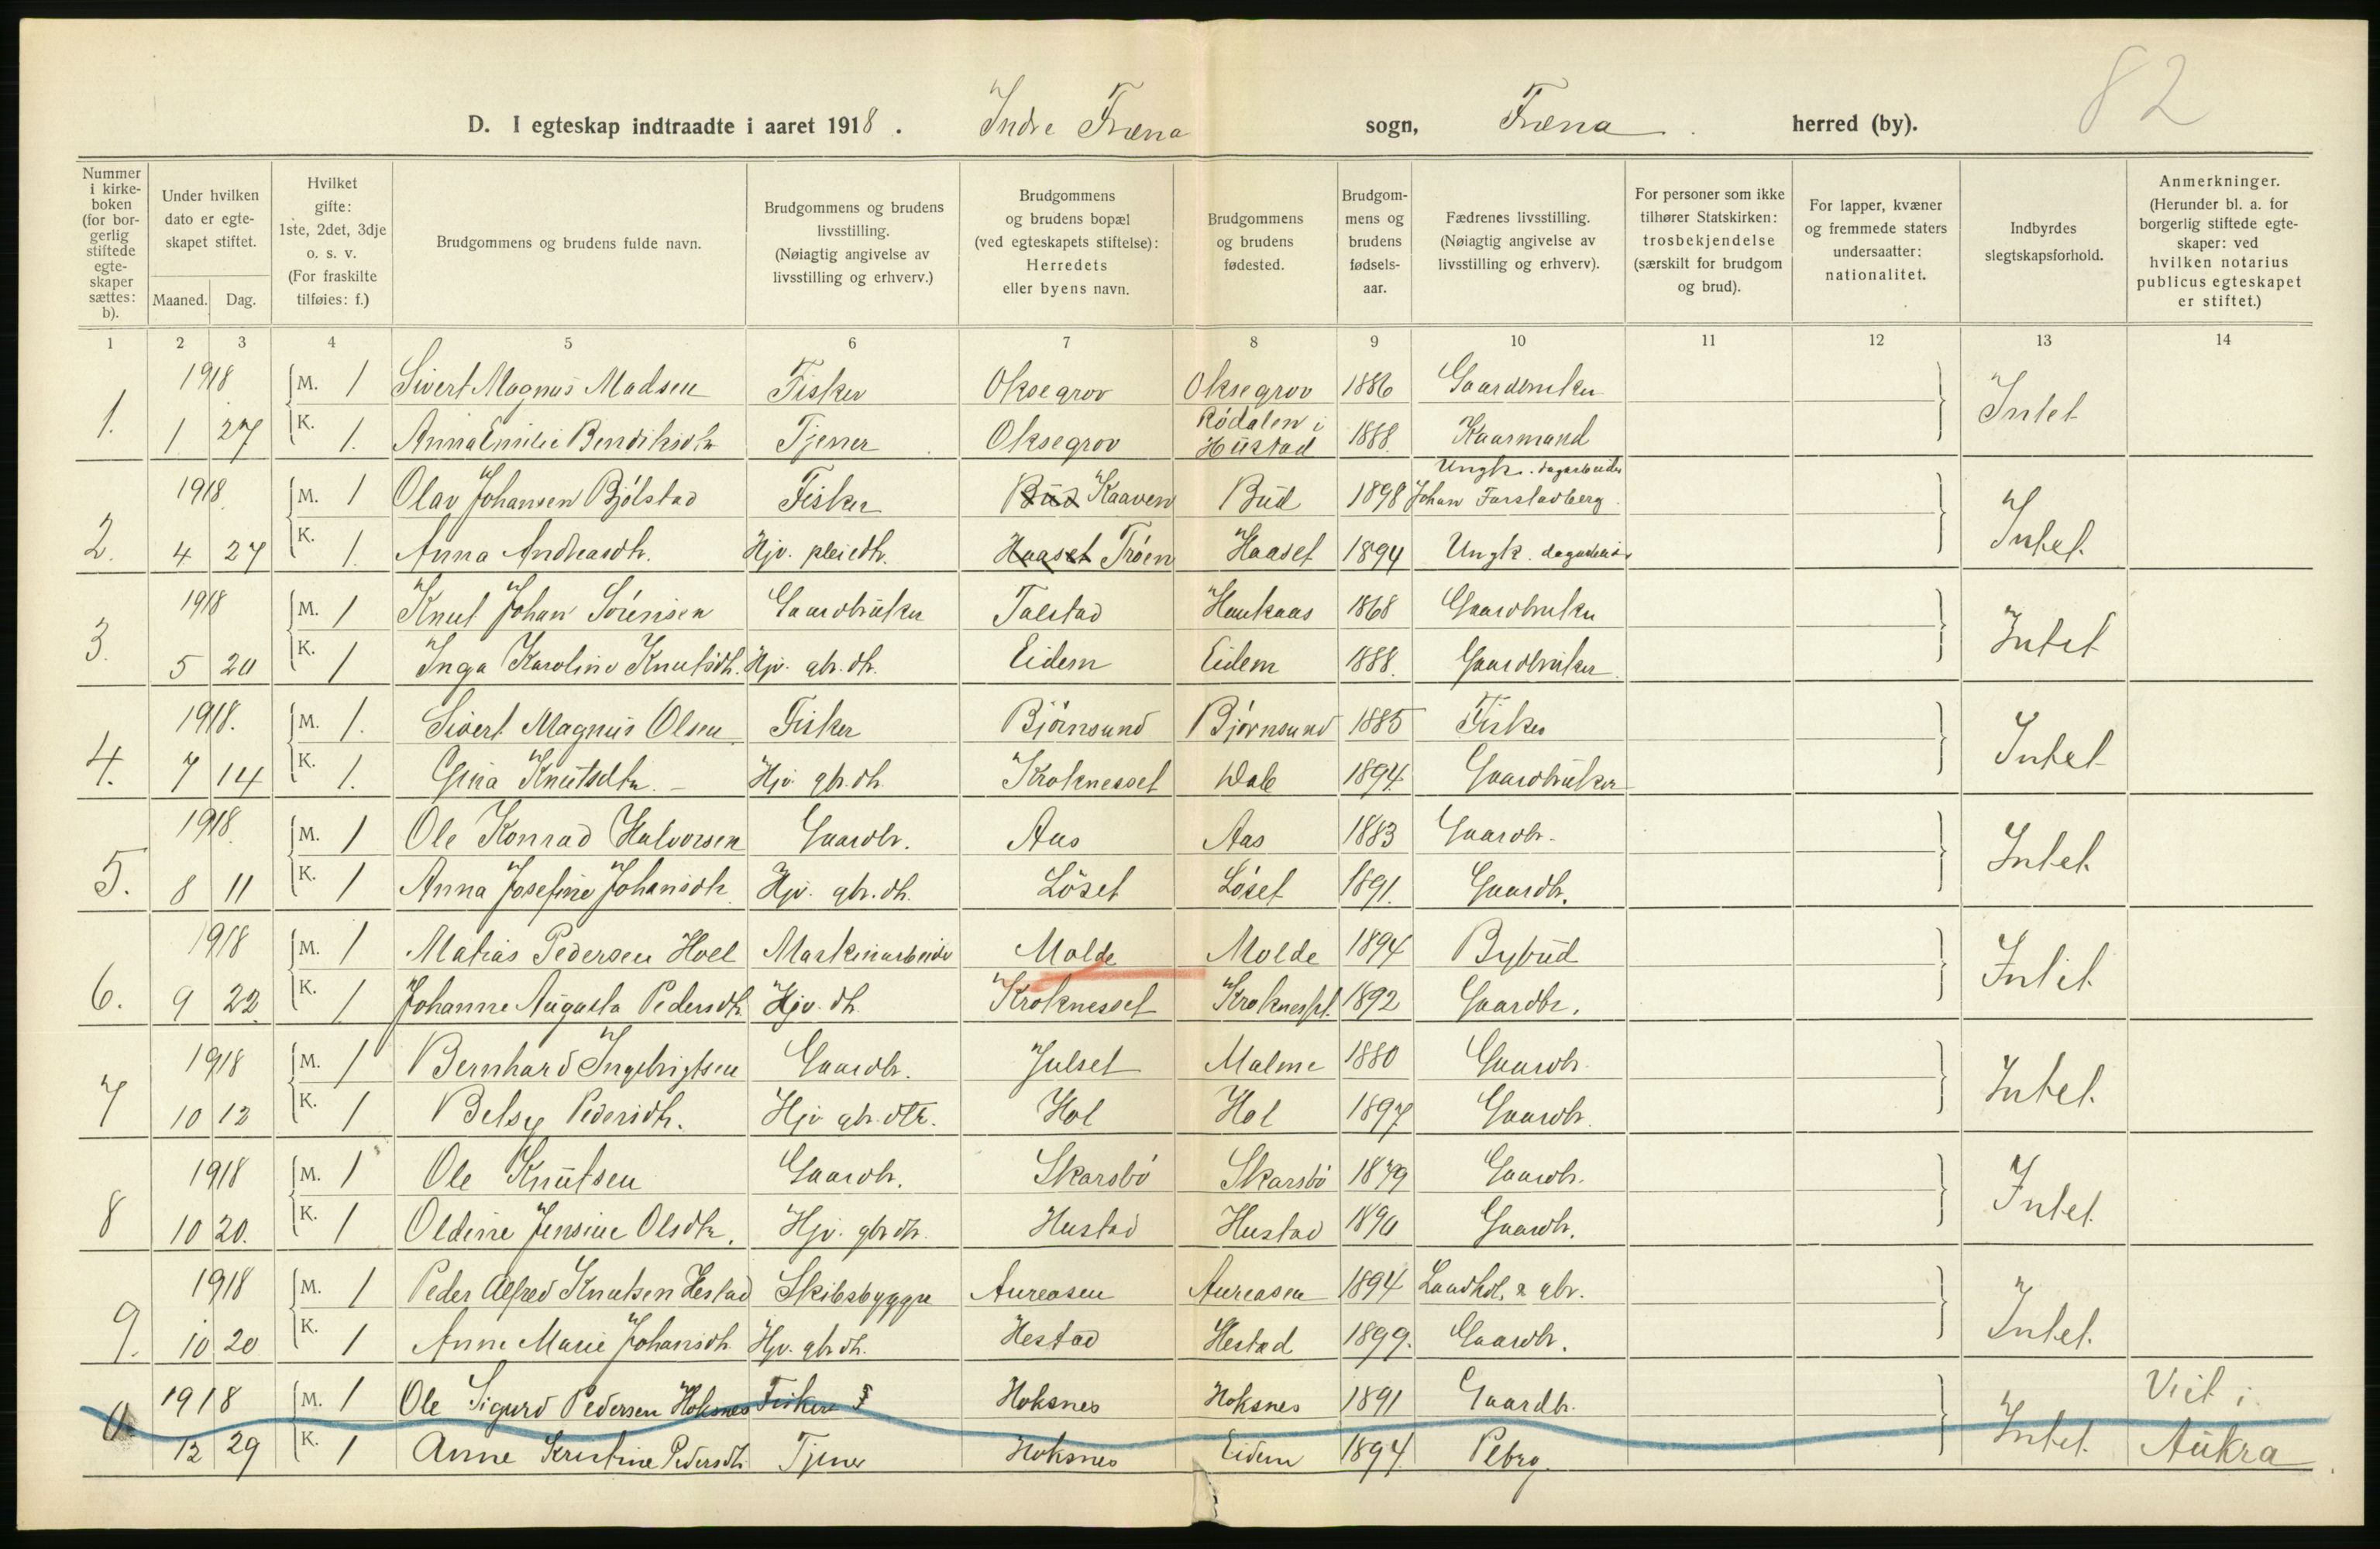 82
D. I egteskap indtraadte i aaret 1918. Indre Fræna sogn, Fræna herred (by).
Nummer i kirkeboken (for borgerlig stiftede egteskaper sættes: b).
Under hvilken dato er egteskapet stiftet.
Maaned. Dag.
Hvilket gifte: 1ste, 2det, 3dje o. s. v. (For fraskilte tilføies: f.)
Brudgommens og brudens fulde navn.
Brudgommens og brudens livsstilling. (Nøiagtig angivelse av livsstilling og erhverv.)
Brudgommens og brudens bopæl (ved egteskapets stiftelse): Herredets eller byens navn.
Brudgommens og brudens fødested.
Brudgommens og brudens fødselsaar.
Fædrenes livsstilling. (Nøiagtig angivelse av livsstilling og erhverv).
For personer som ikke tilhører Statskirken: trosbekjendelse (særskilt for brudgom og brud).
For lapper, kvæner og fremmede staters undersaatter: nationalitet.
Indbyrdes slegtskapsforhold.
Anmerkninger. (Herunder bl. a. for borgerlig stiftede egteskaper: ved hvilken notarius publicus egteskapet er stiftet.)
1 2 3 4 5 6 7 8 9 10 11 12 13 14
1918 M. 1 Sivert Magnus Madsen Fisker Oksegrov Oksegrov 1886 Gaardbruker
1. 1 27 K. 1. Anna Emilie Bendiksdtr Tjener Oksegrov Rödalen i Hustad 1888. Kaarmand Intet
1918. M. 1 Olav Johansen Bjölstad Fisker Bud Kaaven Bud 1898 Ungk. dagarbeider Johan Farstadberg.
2. 4 27 K. 1. Anna Andreasdtr. Hjv. pleiedtr. Haaset Tröen Haaset 1894 Ungk. dagarbeider Intet.
1918 M. 1 Knut Johan Sörensen Gaardbruker Talstad Haukaas 1868 Gaardbruker
3. 5 20 K. 1 Inga Karoline Knutsdtr. Hjv. gbr. dtr. Eidem Eidem 1888. Gaardbruker. Intet
1918. M. 1. Sivert Magnus Olsen Fisker Björnsund Björnsund 1885 Fisker
4. 7 14 K. 1. Gina Knutsdtr. Hjv. gbr. dtr. Kroknesset Dale 1894. Gaardbruker Intet
1918. M. 1 Ole Konrad Halvorsen Gaardbr. Aas Aas 1883 Gaardbr.
5. 8 11 K. 1 Anna Josefine Johansdtr. Hjv. gbr. dtr. Löset Löset 1891. Gaardbr. Intet.
1918 M. 1 Matias Pedersen Hoel Maskinarbeider Molde Molde 1894 Bybud
6. 9 22. K. 1 Johanne Augusta Pedersdtr. Hjv. dtr. Kroknesset Kroknesset. 1892 Gaardbr. Intet.
1918 M. 1 Bernhard Ingebrigtsen Gaardbr. Julset Malme 1880 Gaardbr.
7 10 13 K. 1 Betsy Pedersdtr. Hjv gbr. dtr. Hol Hol 1897 Gaardbr. Intet.
1918 M. 1 Ole Knutsen Gaardbr. Skarsbö Skarsbö 1879 Gaardbr.
8 10 20. K. 1 Oldine Jensine Olsdtr. Hjv. gbr dtr. Hustad Hustad 1890 Gaardbr. Intet.
1918 M. 1 Peder Alfred Knutsen Hestad Skibsbygger Aureosen Aureosen 1894 Landhdl. & gbr.
9. 10 20 K. 1 Anne Marie Johansdtr. Hjv. gbr dtr. Hestad Hestad 1899. Gaardbr. Intet.
1918 M. 1 Ole Sigurd Pedersen Hoksnes Fisker Hoksnes Hoksnes 1891 Gaardbr. Viet i
12 29 K. 1 Anne Kristine Pedersdtr. Tjener Hoksnes Eidem 1894. Intet. Aukra